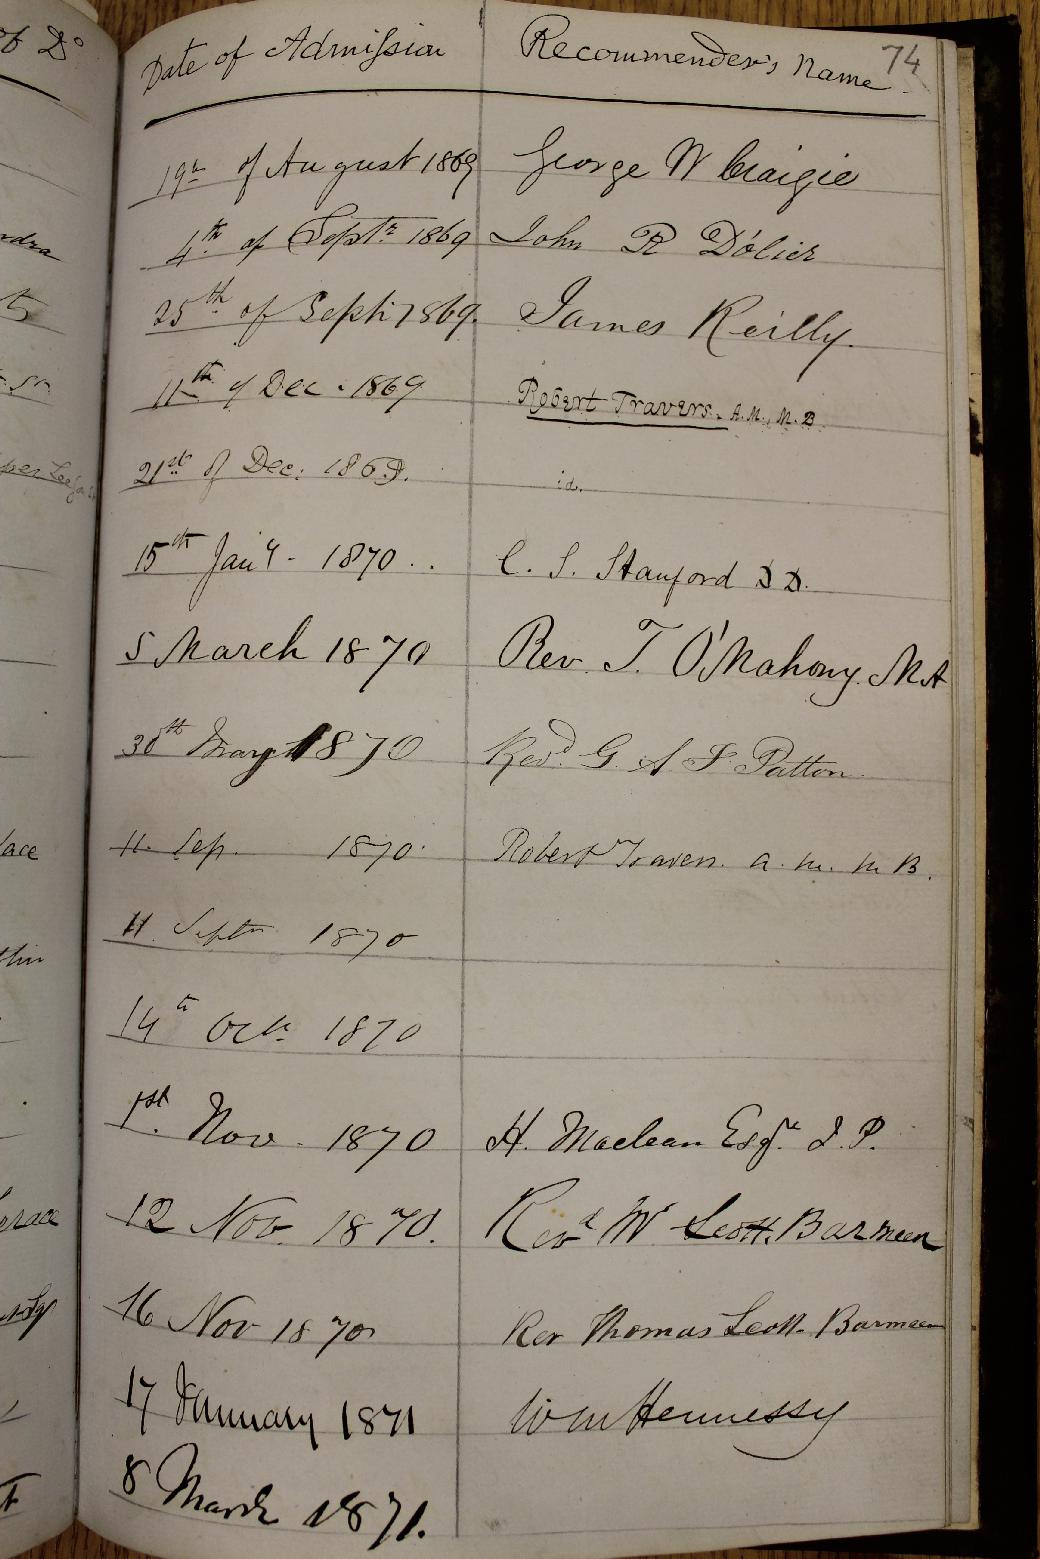 of Do
Date of Admission Recommender's Name 74
19th of August 1869 George W Craigie
4th of Septr 1869 John R D'olier
25th of Sept. 1869. James Reilly.
11th of Dec. 1869 Robert Travers. A.M., M.B.
21st of Dec: 1869. id.
15th Jany - 1870 . . C. S. Stanford D D.
5 March 1870 Rev. T. O'Mahony. MA
30th 1870 Revd. G A F Patton
11. Sep. 1870. Robert Travers. a. m. m B.
lace
11. Septr 1870
14th Octr 1870
1st. Nov. 1870 H. Maclean Esqr. J. P.
12 Nov. 1870. Revd W Scott. Barmeen
16 Nov 1870 Rev Thomas Scott. Barmeen
17 January 1871 Wm Hennessy
8 March 1871.